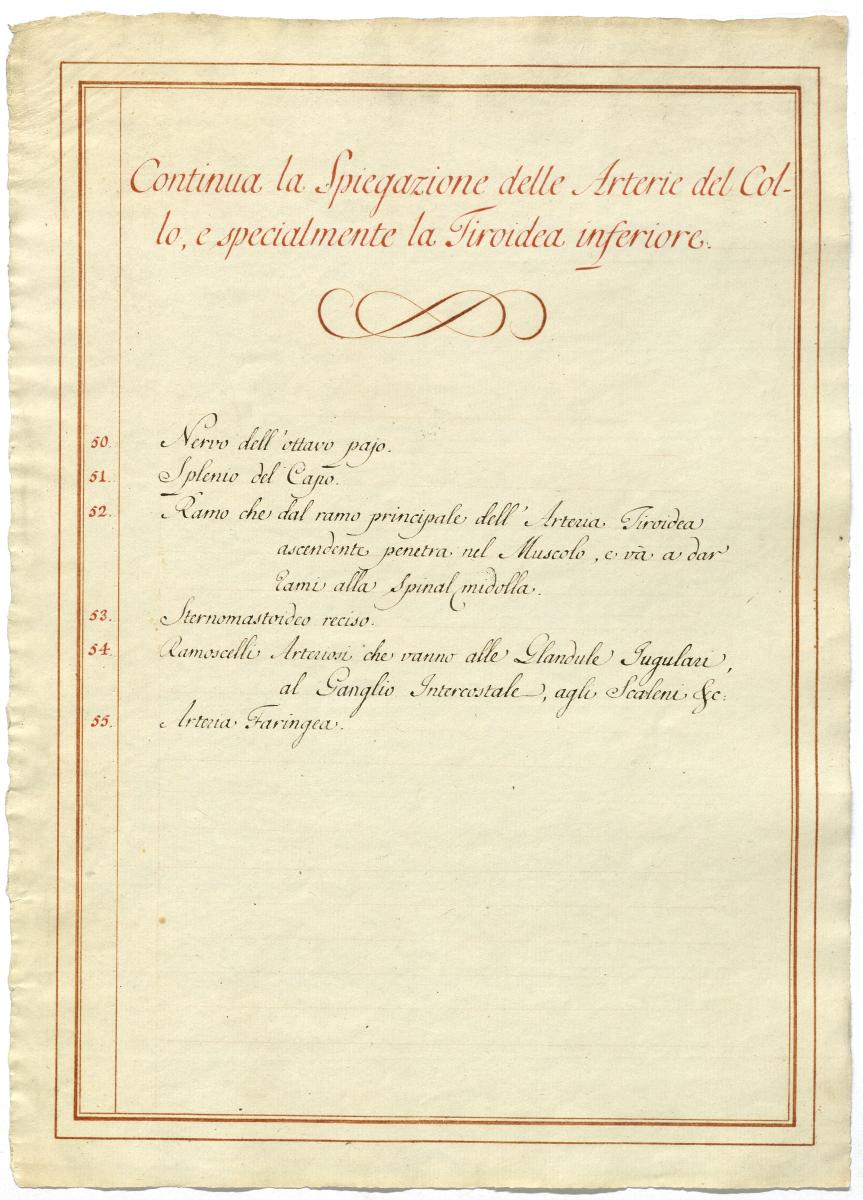 Continua la Spiegazione delle Arterie del Col-
lo, e specialmente la Tiroidea inferiore.
50. Nervo dell'ottavo pajo.
51. Splenio del Capo.
52. Ramo che dal ramo principale dell'Arteria Tiroidea
ascendente penetra nel Muscolo, e và a dar
rami alla spinal midolla.
53. Sternomastoideo reciso.
54. Ramoscelli Arteriosi che vanno alle Glandule Jugulari,
al Ganglio Intercostale, agli Scaleni &c:
55. Arteria Faringea.